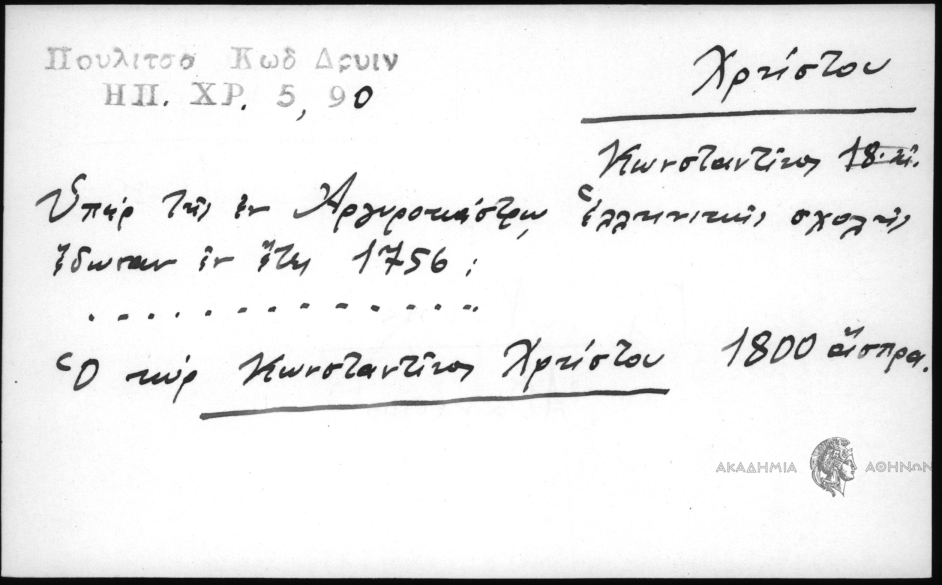 Πουλιτσα Κωδ Δρυιν
ΗΠ. ΧΡ. 5, 90
Χρήστου
Κωνσταντῖνος 18. αἰ.
Ὑπὲρ τῆς ἐν Ἀργυροκάστρῳ Ἑλληνικῆς σχολῆς
ἔδωσαν ἐν ἔτει 1756 :
. . . . . . . . . . . . . .
Ὁ κύρ Κωνσταντῖνος Χρήστου 1800 ἄσπρα.
ΑΚΑΔΗΜΙΑ ΑΘΗΝΩΝ